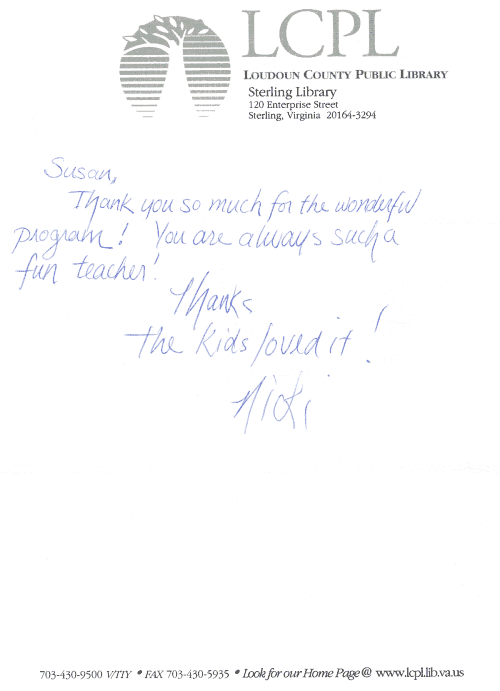 LCPL
LOUDOUN COUNTY PUBLIC LIBRARY
Sterling Library
120 Enterprise Street
Sterling, Virginia 20164-3294
Susan,
Thank you so much for the wonderful
program! You are always such a
fun teacher!
Thanks
The kids loved it!
Nicki
703-430-9500 V/TTY • FAX 703-430-5935 • Look for our Home Page @ www.lcpl.lib.va.us